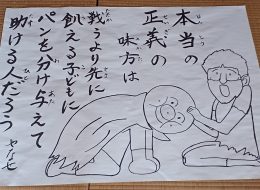 本当の
正義の
味方は
戦うより先に
飢える子どもに
パンを分け与えて
助ける人だろう
やなせ